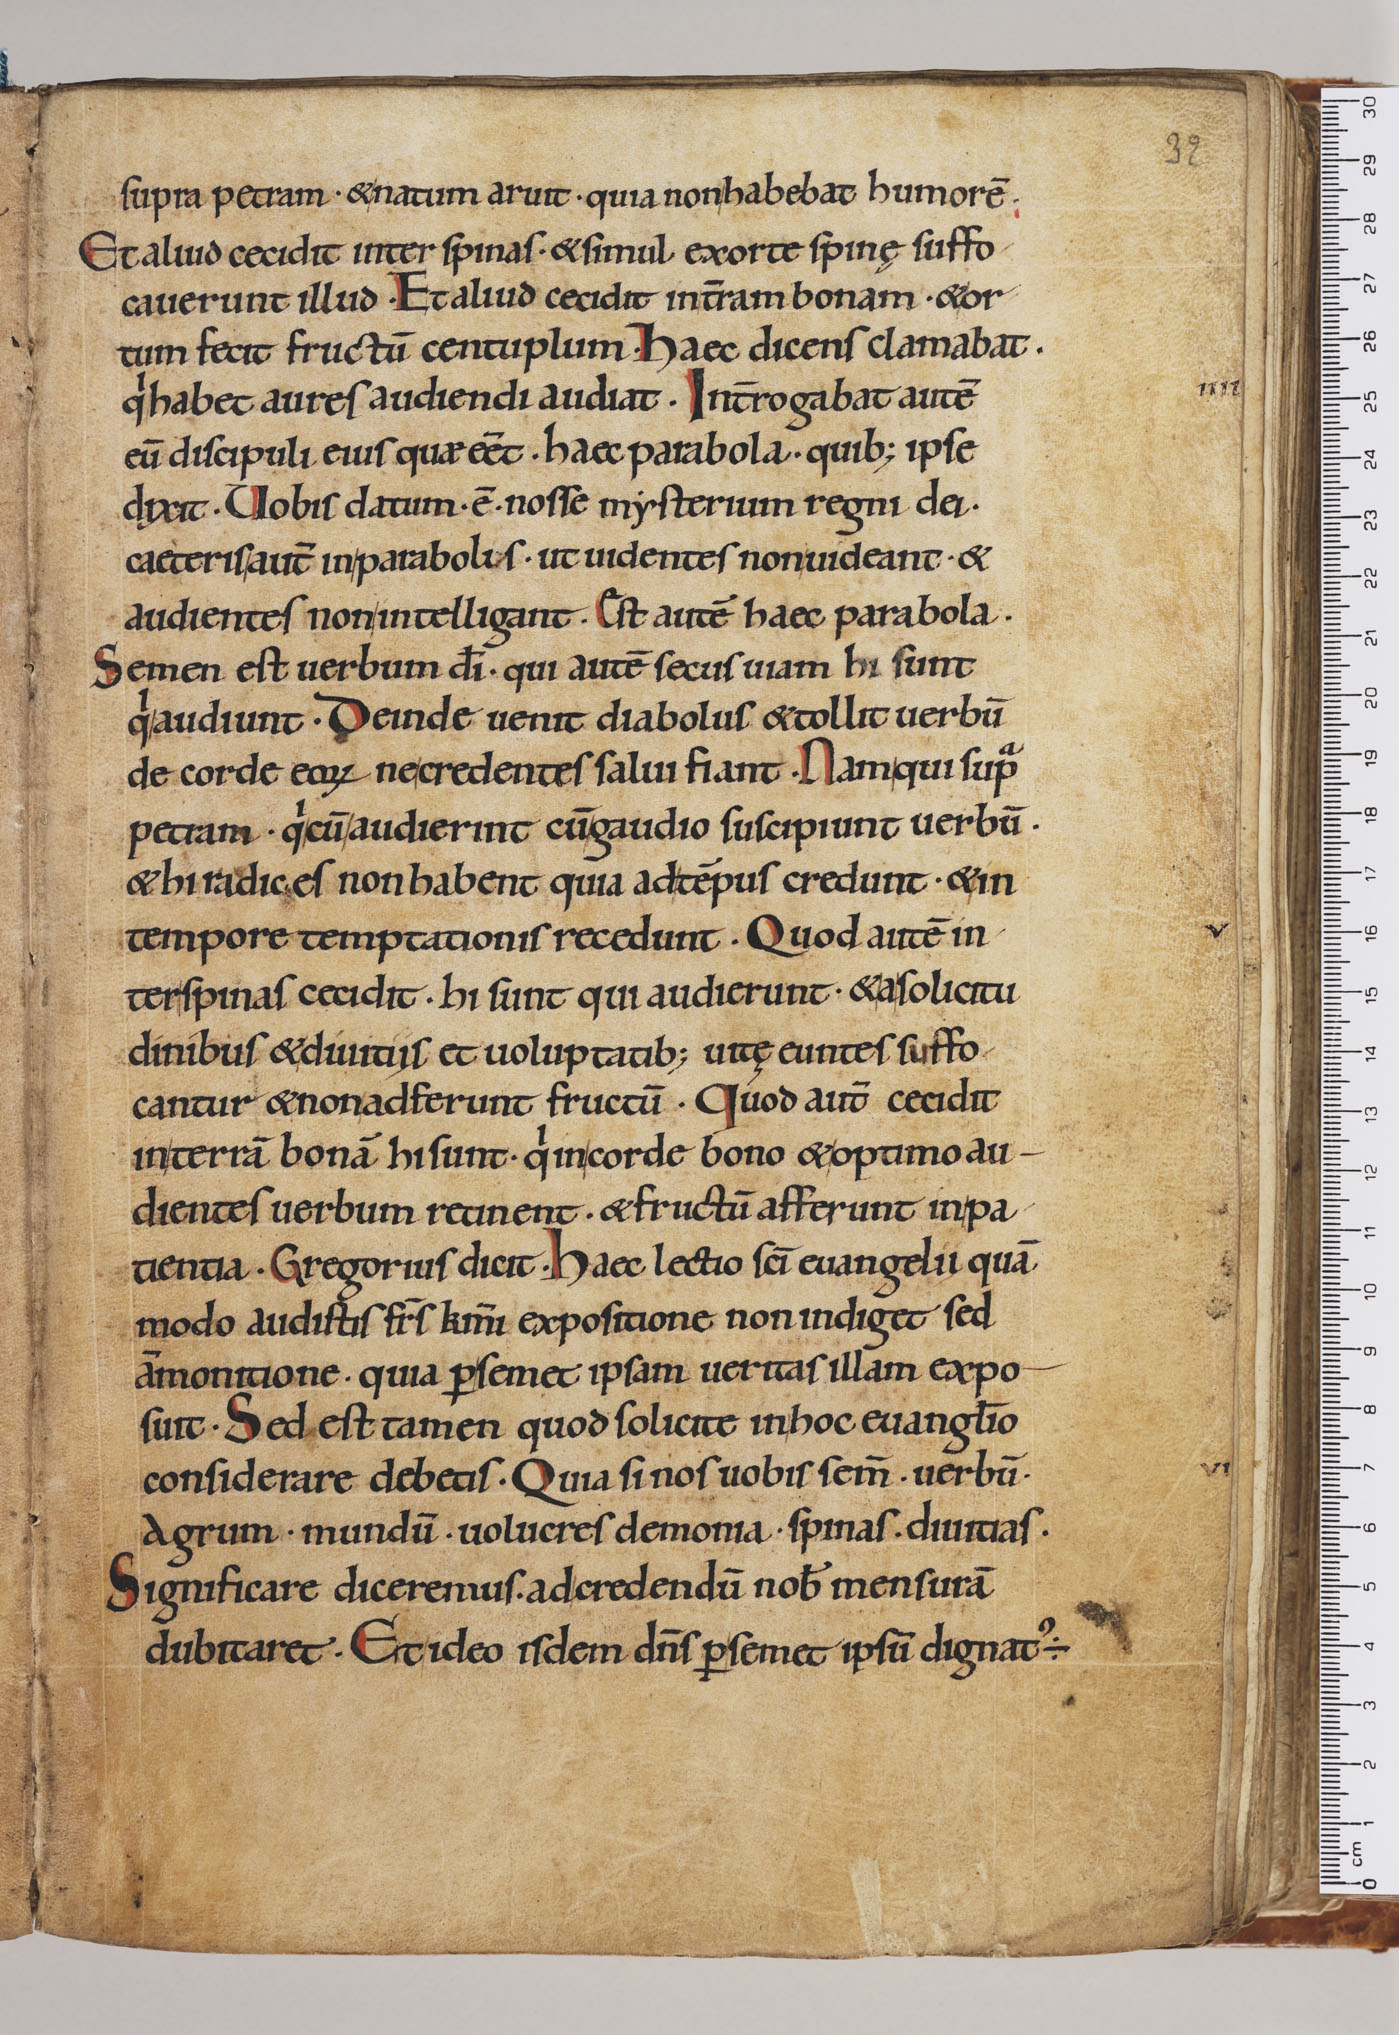 32
supra petram · & natum aruit · quia non habebat humorē.
Et aliud cecidit inter spinas · & simul exorte spinę suffo
cauerunt illud · Et aliud cecidit int̄ram bonam · & or
tum fecit fructū centuplum · Haec dicens clamabat.
qͥ habet aures audiendi audiat · Int̄rogabat autē
IIII
eū discipuli eius quæ eēt · haec parabola · quib; ipse
dixit · Uobis datum · ē · nosse mẏsterium regni dei ·
caeteris aut̄ in parabolis · ut uidentes non uideant · &
audientes non intelligant · Est autē haec parabola.
Semen est uerbum dī · qui autē secus uiam hi sunt
qͥ audiunt · Deinde uenit diabolus & tollit uerbū
de corde eoꝝ ne credentes salui fiant · Nam qui supᵃ
petram · qͥ cū audierint cū gaudio suscipiunt uerbū ·
& hi radices non habent quia ad tēpus credunt · & in
tempore temptationis recedunt · Quod autē in
V
ter spinas cecidit · hi sunt qui audierunt · & a solicitu
dinibus & diuitiis et uoluptatib; uitę euntes suffo
cantur & non adferunt fructū · Quod aut̄ cecidit
in terrā bonā hi sunt · qͥ in corde bono & optimo au-
dientes uerbum retinent · & fructū afferunt in pa
tientia · Gregorius dicit · Haec lectio scī euangelii quā
modo audistis fr̄s km̄i expositione non indiget sed
āmonitione · quia ꝑ semet ipsam ueritas illam expo-
suit · Sed est tamen quod solicite in hoc euangl̄io
considerare debetis · Quia si nos uobis sem̄ · uerbū ·
VI
Agrum · mundū · uolucres demonia · spinas · diuitias ·
Significare diceremus · ad credendū nob̄ mensurā
dubitaret · Et ideo isdem dn̄s ꝑ semet ipsū dignatˀ÷